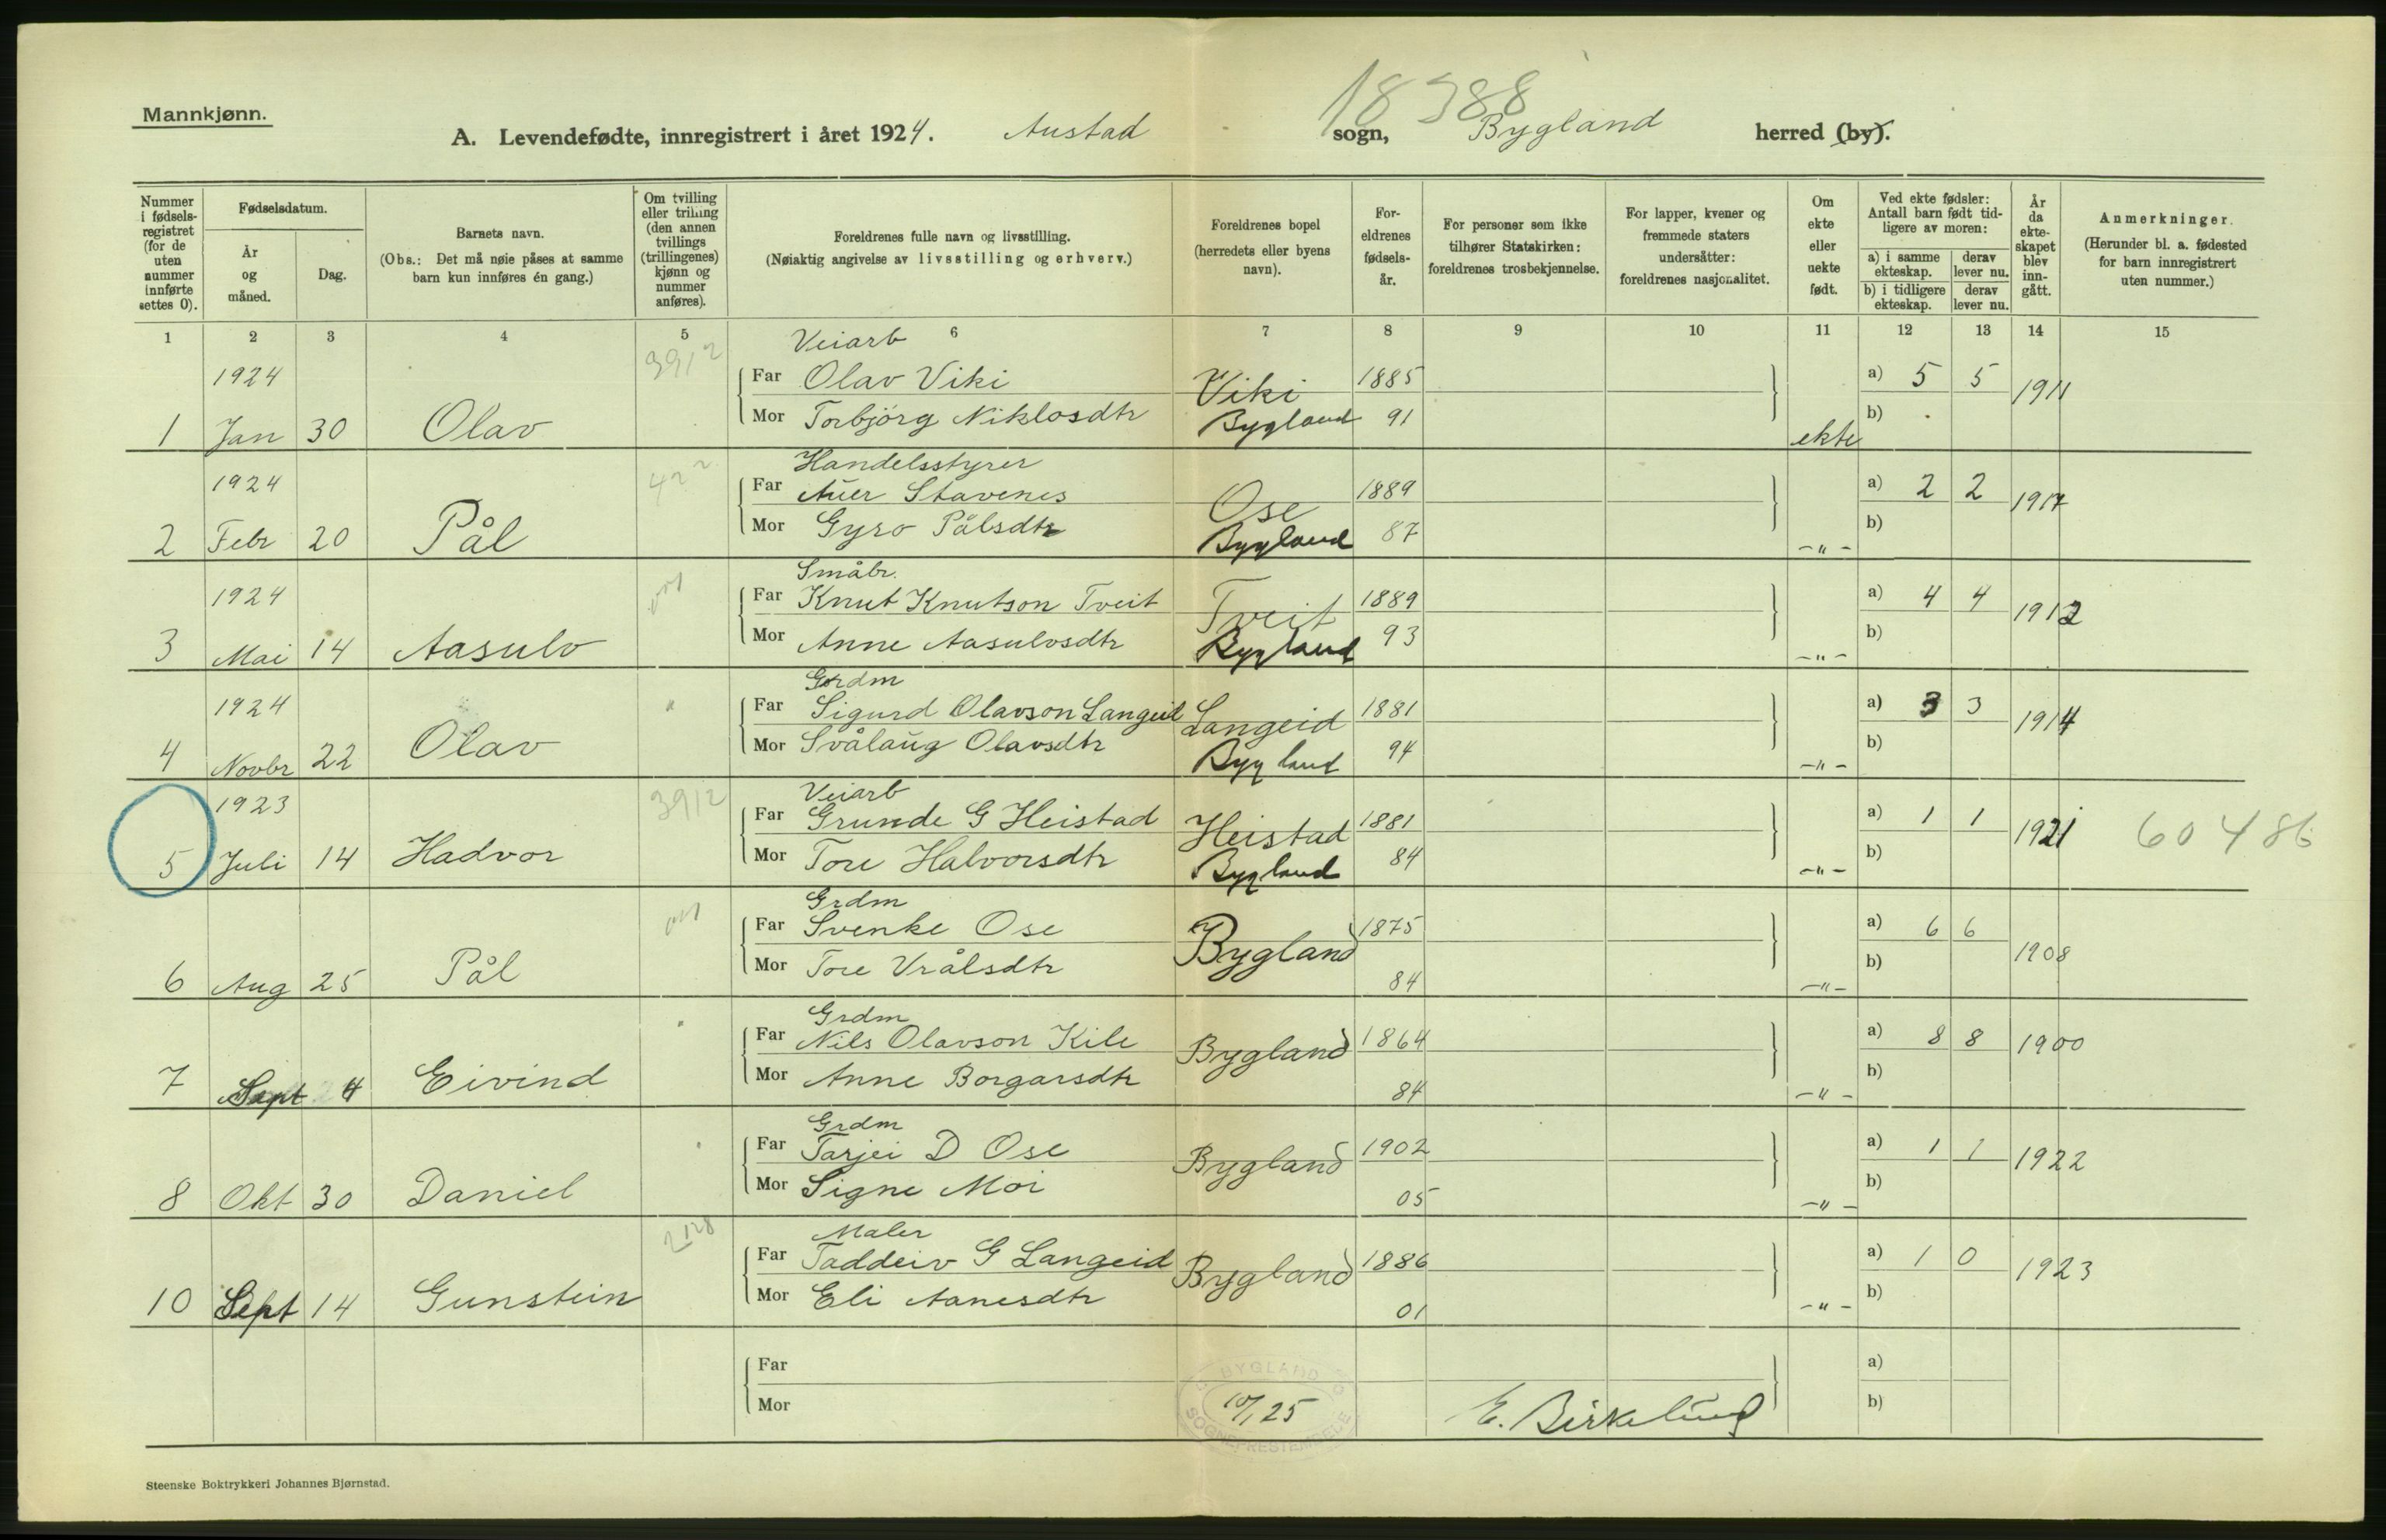 18388
Mannkjønn.
A. Levendefødte, innregistrert i året 1924. Austad sogn, Bygland herred (by).
Nummer i fødsels-registret (for de uten nummer innførte settes 0).
Fødselsdatum.
År og måned.
Dag.
Barnets navn.
(Obs.: Det må nøie påses at samme barn kun innføres én gang.)
Om tvilling eller trilling (den annen tvillings (trillingenes) kjønn og nummer anføres).
Foreldrenes fulle navn og livsstilling.
(Nøiaktig angivelse av livsstilling og erhverv.)
Foreldrenes bopel (herredets eller byens navn).
For-eldrenes fødsels-år.
For personer som ikke tilhører Statskirken: foreldrenes trosbekjennelse.
For lapper, kvener og fremmede staters undersåtter: foreldrenes nasjonalitet.
Om ekte eller uekte født.
Ved ekte fødsler: Antall barn født tid-ligere av moren:
a) i samme ekteskap. derav lever nu.
b) i tidligere ekteskap. derav lever nu.
År da ekte-skapet blev inn-gått.
Anmerkninger.
(Herunder bl. a. fødested for barn innregistrert uten nummer.)
1 2 3 4 5 6 7 8 9 10 11 12 13 14 15
Veiarb
1924 3912 Far Olav Viki Viki 1885 a) 5 5 1911
1 Jan 30 Olav Mor Torbjörg Niklosdtr Bygland 91 ekte b)
Handelsstyrer
1924 Far Auer Stavenes Ose 1889 a) 2 2 1917
2 Febr 20 Pål Mor Gyro Pålsdtr Bygland 87 -"- b)
Småbr.
1924 Far Knut Knutson Tveit Tveit 1889 a) 4 4 1912
3 Mai 14 Aasulv Mor Anne Aasulvsdtr Bygland 93 -"- b)
Grdm
1924 " Far Sigurd Olavson Langeid Langeid 1881 a) 3 3 1914
4 Novbr 22 Olav Mor Svålaug Olavsdtr Bygland 94 -"- b)
Veiarb
1923 3912 Far Grunde G Heistad Heistad 1881 a) 1 1 1921 60486
5 Juli 14 Hadvor Mor Tore Halvorsdtr Bygland 84 -"- b)
Grdm
Far Svenke Ose Bygland 1875 a) 6 6 1908
6 Aug 25 Pål Mor Tore Vrålsdtr 84 -"- b)
Grdm
" Far Nils Olavson Kile Bygland 1864 a) 8 8 1900
7 Sept 4 Eivind Mor Anne Borgarsdtr 84 -"- b)
Grdm
Far Tarjei D Ose Bygland 1902 a) 1 1 1922
8 Okt 30 Daniel Mor Signe Moi 05 -"- b)
Maler
2128 Far Taddeiv G Langeid Bygland 1886 a) 1 0 1923
10 Sept 14 Gunstein Mor Eli Aanesdtr 01 -"- b)
Far a)
Mor b)
BYGLAND
10/1 25
SOGNEPRESTEMBEDE
E. Birkelund
Steenske Boktrykkeri Johannes Bjørnstad.